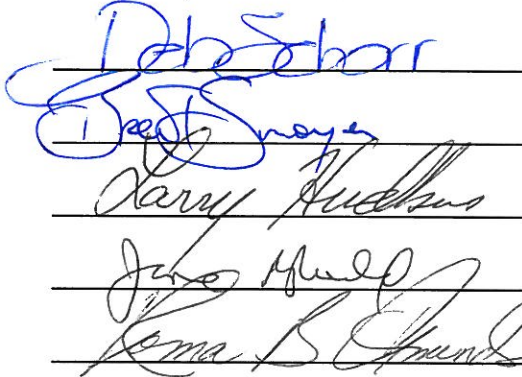 Deb Schorr
Brent Smoyer
Larry Hudkins
Jane
Roma B Amundson